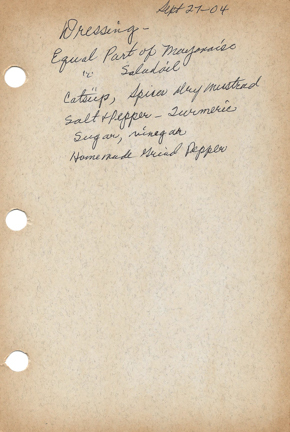 Sept 27-04
Dressing-
Equal Part of Mayonaise
" " Saladoil
Catsup, Spice dry Mustrad
Salt & Pepper - Turmeric
Sugar, vinegar
Homemade Grind Pepper